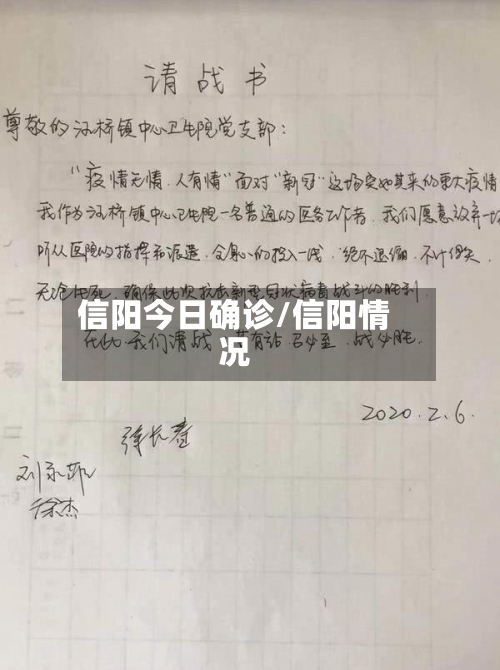 请战书
尊敬的汪桥镇中心卫生院党支部：
"疫情无情，人有情"面对"新冠"这场突如其来的重大疫情
我作为汪桥镇中心卫生院一名普通的医务工作者，我们愿意放弃一切
听从医院的指挥和派遣，全身心的投入一线，绝不退缩，不计得失
无论生死，确保此次抗击新型冠状病毒战斗的胜利
信阳今日确诊/信阳情
况
在此，我们请战，若有 召必至，战必胜。
2020.2.6.
徐长春
徐杰